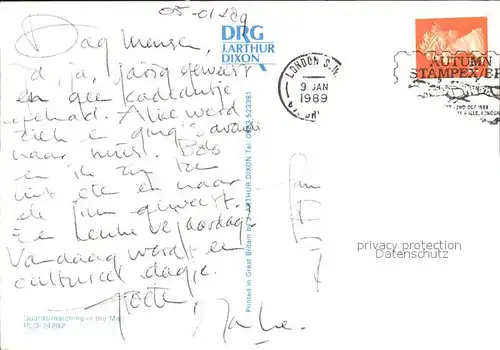 05-01-89
Dag mensen,
Ja ja, jarig geweest
en gee kadootje
gehad. Alice werd
ziek en ging 's avonds
naar huis. Bob
en ik zijn toen
uit ete en naar
de film geweest.
Een leuke verjaardag.
Vandaag wordt een
cultureel dagje.
groeten
DRG
J. ARTHUR
DIXON
Printed in Great Britain by J. ARTHUR DIXON Tel: 0983 523381
LONDON S.W.
9 JAN
1989
AUTUMN
STAMPEX/BP
privacy protection
Datenschutz
Guards marching in the Mall
PLO-24282